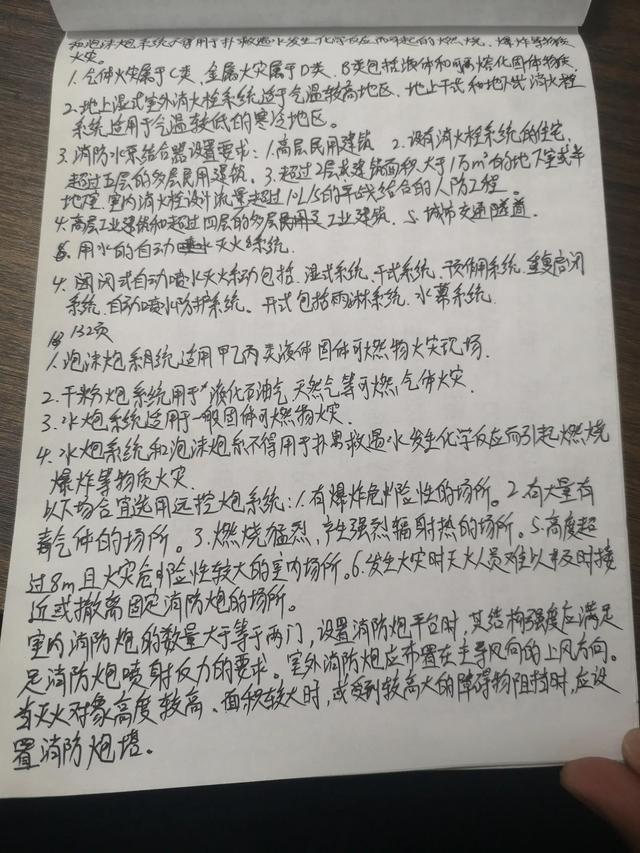 和泡沫炮系统不得用于扑救遇水发生化学反应而引起的燃烧、爆炸等物质
火灾。
1.气体火灾属于C类、金属火灾属于D类、B类包括液体和可熔化固体物质
2.地上湿式室外消火栓系统适于气温较高地区、地上干式和地下式消火栓
系统适用于气温较低的寒冷地区。
3.消防水泵结合器设置要求：1.高层民用建筑 2.设有消火栓系统的住宅，
超过五层的多层民用建筑、3.超过2层或建筑面积大于1万m²的地下室或半
地下室、室内消火栓设计流量超过10L/S的平战结合的人防工程。
4.高层工业建筑和超过四层的多层工业建筑、5.城市交通隧道.
用水的自动灭火系统.
4.闭式自动喷水灭火系功包括、湿式系统、干式系统、预作用系统、重复启闭
系统、自动喷水防护系统。开式包括雨淋系统、水幕系统.
132页
1.泡沫炮系统适用甲乙丙类液体固体可燃物火灾现场.
2.干粉炮系统用于液化石油气 天然气等可燃气体火灾.
3.水炮系统适用于一般固体可燃物火灾.
4.水炮系统和泡沫炮系不得用于扑救遇水发生化学反应而引起燃烧
爆炸等物质火灾.
以下场合宜选用远控炮系统：1.有爆炸危险性的场所。2.有大量有
毒气体的场所。3.燃烧猛烈，产生强烈辐射热的场所。5.高度超
过8m且火灾危险性较大的室内场所。6.发生火灾时灭火人员难以及时接
近或撤离固定消防炮的场所。
室内消防炮的数量大于等于两门，设置消防炮平台时，其结构强度应满足
足消防炮喷射反力的要求。室外消防炮应布置在主导风向的上风方向。
当灭火对象高度较高、面积较大时，或受到较高大的障碍物阻挡时，应设
置消防炮塔。